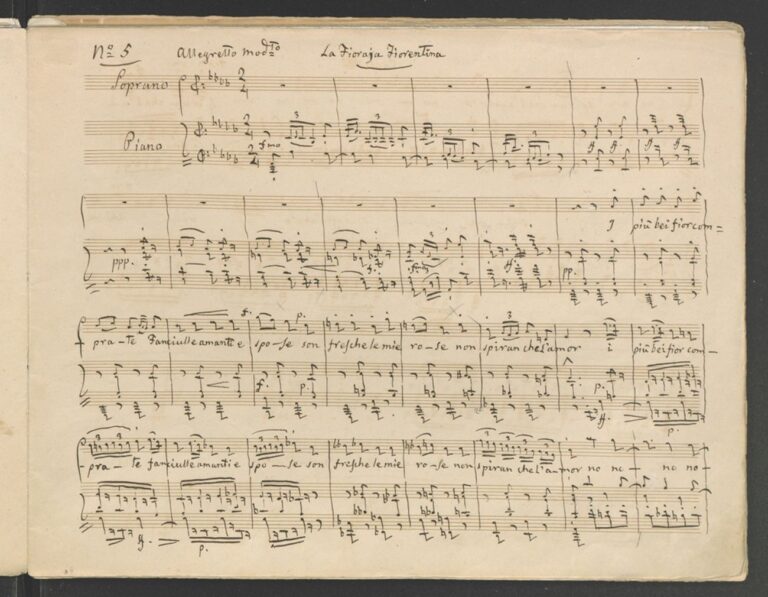 No 5 Allegretto modto La Fioraja Fiorentina
Soprano
Piano
fmo
ff ff
I più bei fior com=
ppp. f. ff pp.
f. p.
pra-te fanciulle amanti e spo-se son fresche le mie ro-se non spiran che l'amor i più bei fior com-
f. p. p. ff. p.
pra-te fanciulle amanti e spo-se son fresche le mie ro-se non spiran che l'a-mor no no- no no-
ff. p.